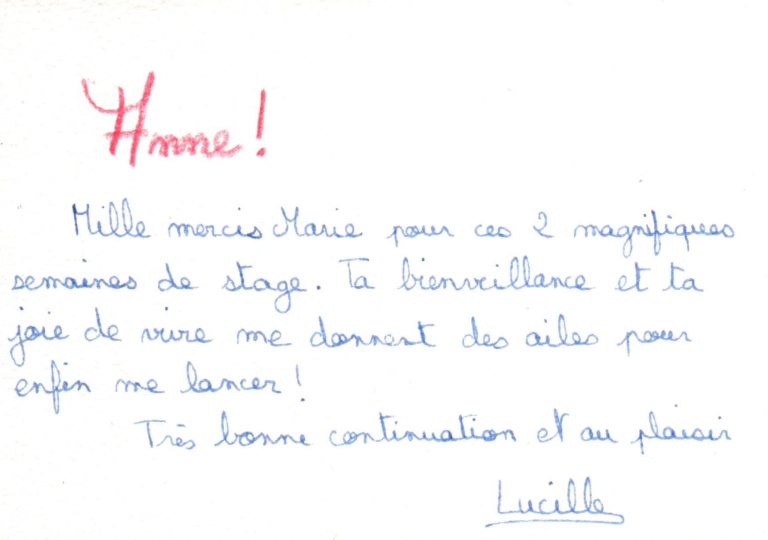 Anne !
Mille mercis Marie pour ces 2 magnifiques
semaines de stage. Ta bienveillance et ta
joie de vivre me donnent des ailes pour
enfin me lancer !
Très bonne continuation et au plaisir
Lucille